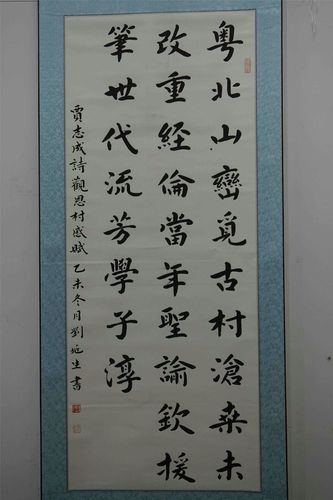 粤北山巒覓古村滄桑未
改重經倫當年聖諭欽援
筆世代流芳學子淳
賈志成詩觀恩村感賦 乙未冬月劉延生書